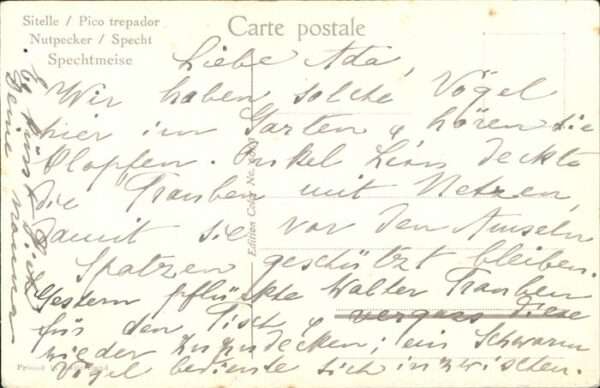 Sitelle / Pico trepador
Nutpecker / Specht
Spechtmeise
Carte postale
Liebe Ada,
Wir haben solche Vögel
hier im Garten & hören sie
klopfen. Onkel Léon deckte
die Trauben mit Netzen,
damit sie vor den Amseln
Spatzen geschützt bleiben.
Gestern pflückte Walter Trauben
für den Tisch & vergass diese
wieder zuzudecken; ein Schwarm
Vögel bediente sich inzwischen.
Es küsst Dich
Deine
Edition Color No.
Printed in